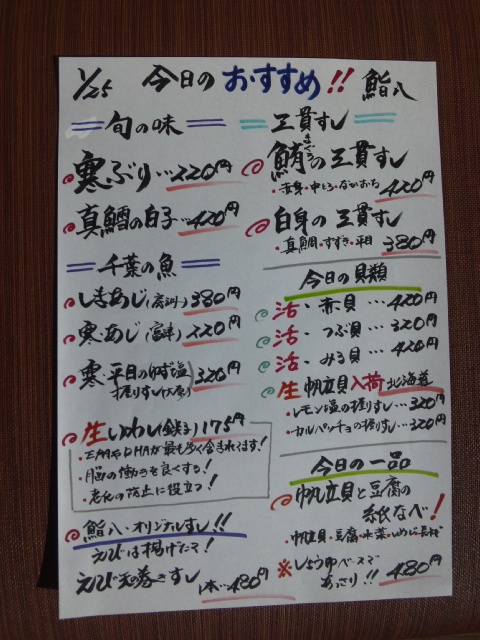 1/25 今日のおすすめ!! 鮨八
旬の味
寒ぶり…220円
真鱈の白子…420円
千葉の魚
しまあじ 380円
寒・あじ(富津) 220円
寒・平目の(ゆず塩) 320円
握りすし(大原)
生いわし(銚子) 175円
・EPAやDHAが最も多く含まれてます!
・脳の働きを良くする!
・老化の防止に役立つ!
鮨八・オリジナルすし!!
えびは揚げたて!
えび天の巻きすし
1本…480円
三貫すし
鮪の三貫すし
まぐろ
・赤身・中とろ・ながおち 420円
白身の三貫すし
・真鯛・すずき・平目 380円
今日の貝類
活・赤貝…420円
活・つぶ貝…320円
活・みる貝…420円
生帆立貝入荷 北海道
・レモン塩の握りすし…320円
・カルパッチョの握りすし…320円
今日の一品
帆立貝と豆腐の
紙なべ!
・帆立貝・豆腐・水菜・しめじ・長ねぎ
※しょうゆベースで
あっさり!! 480円